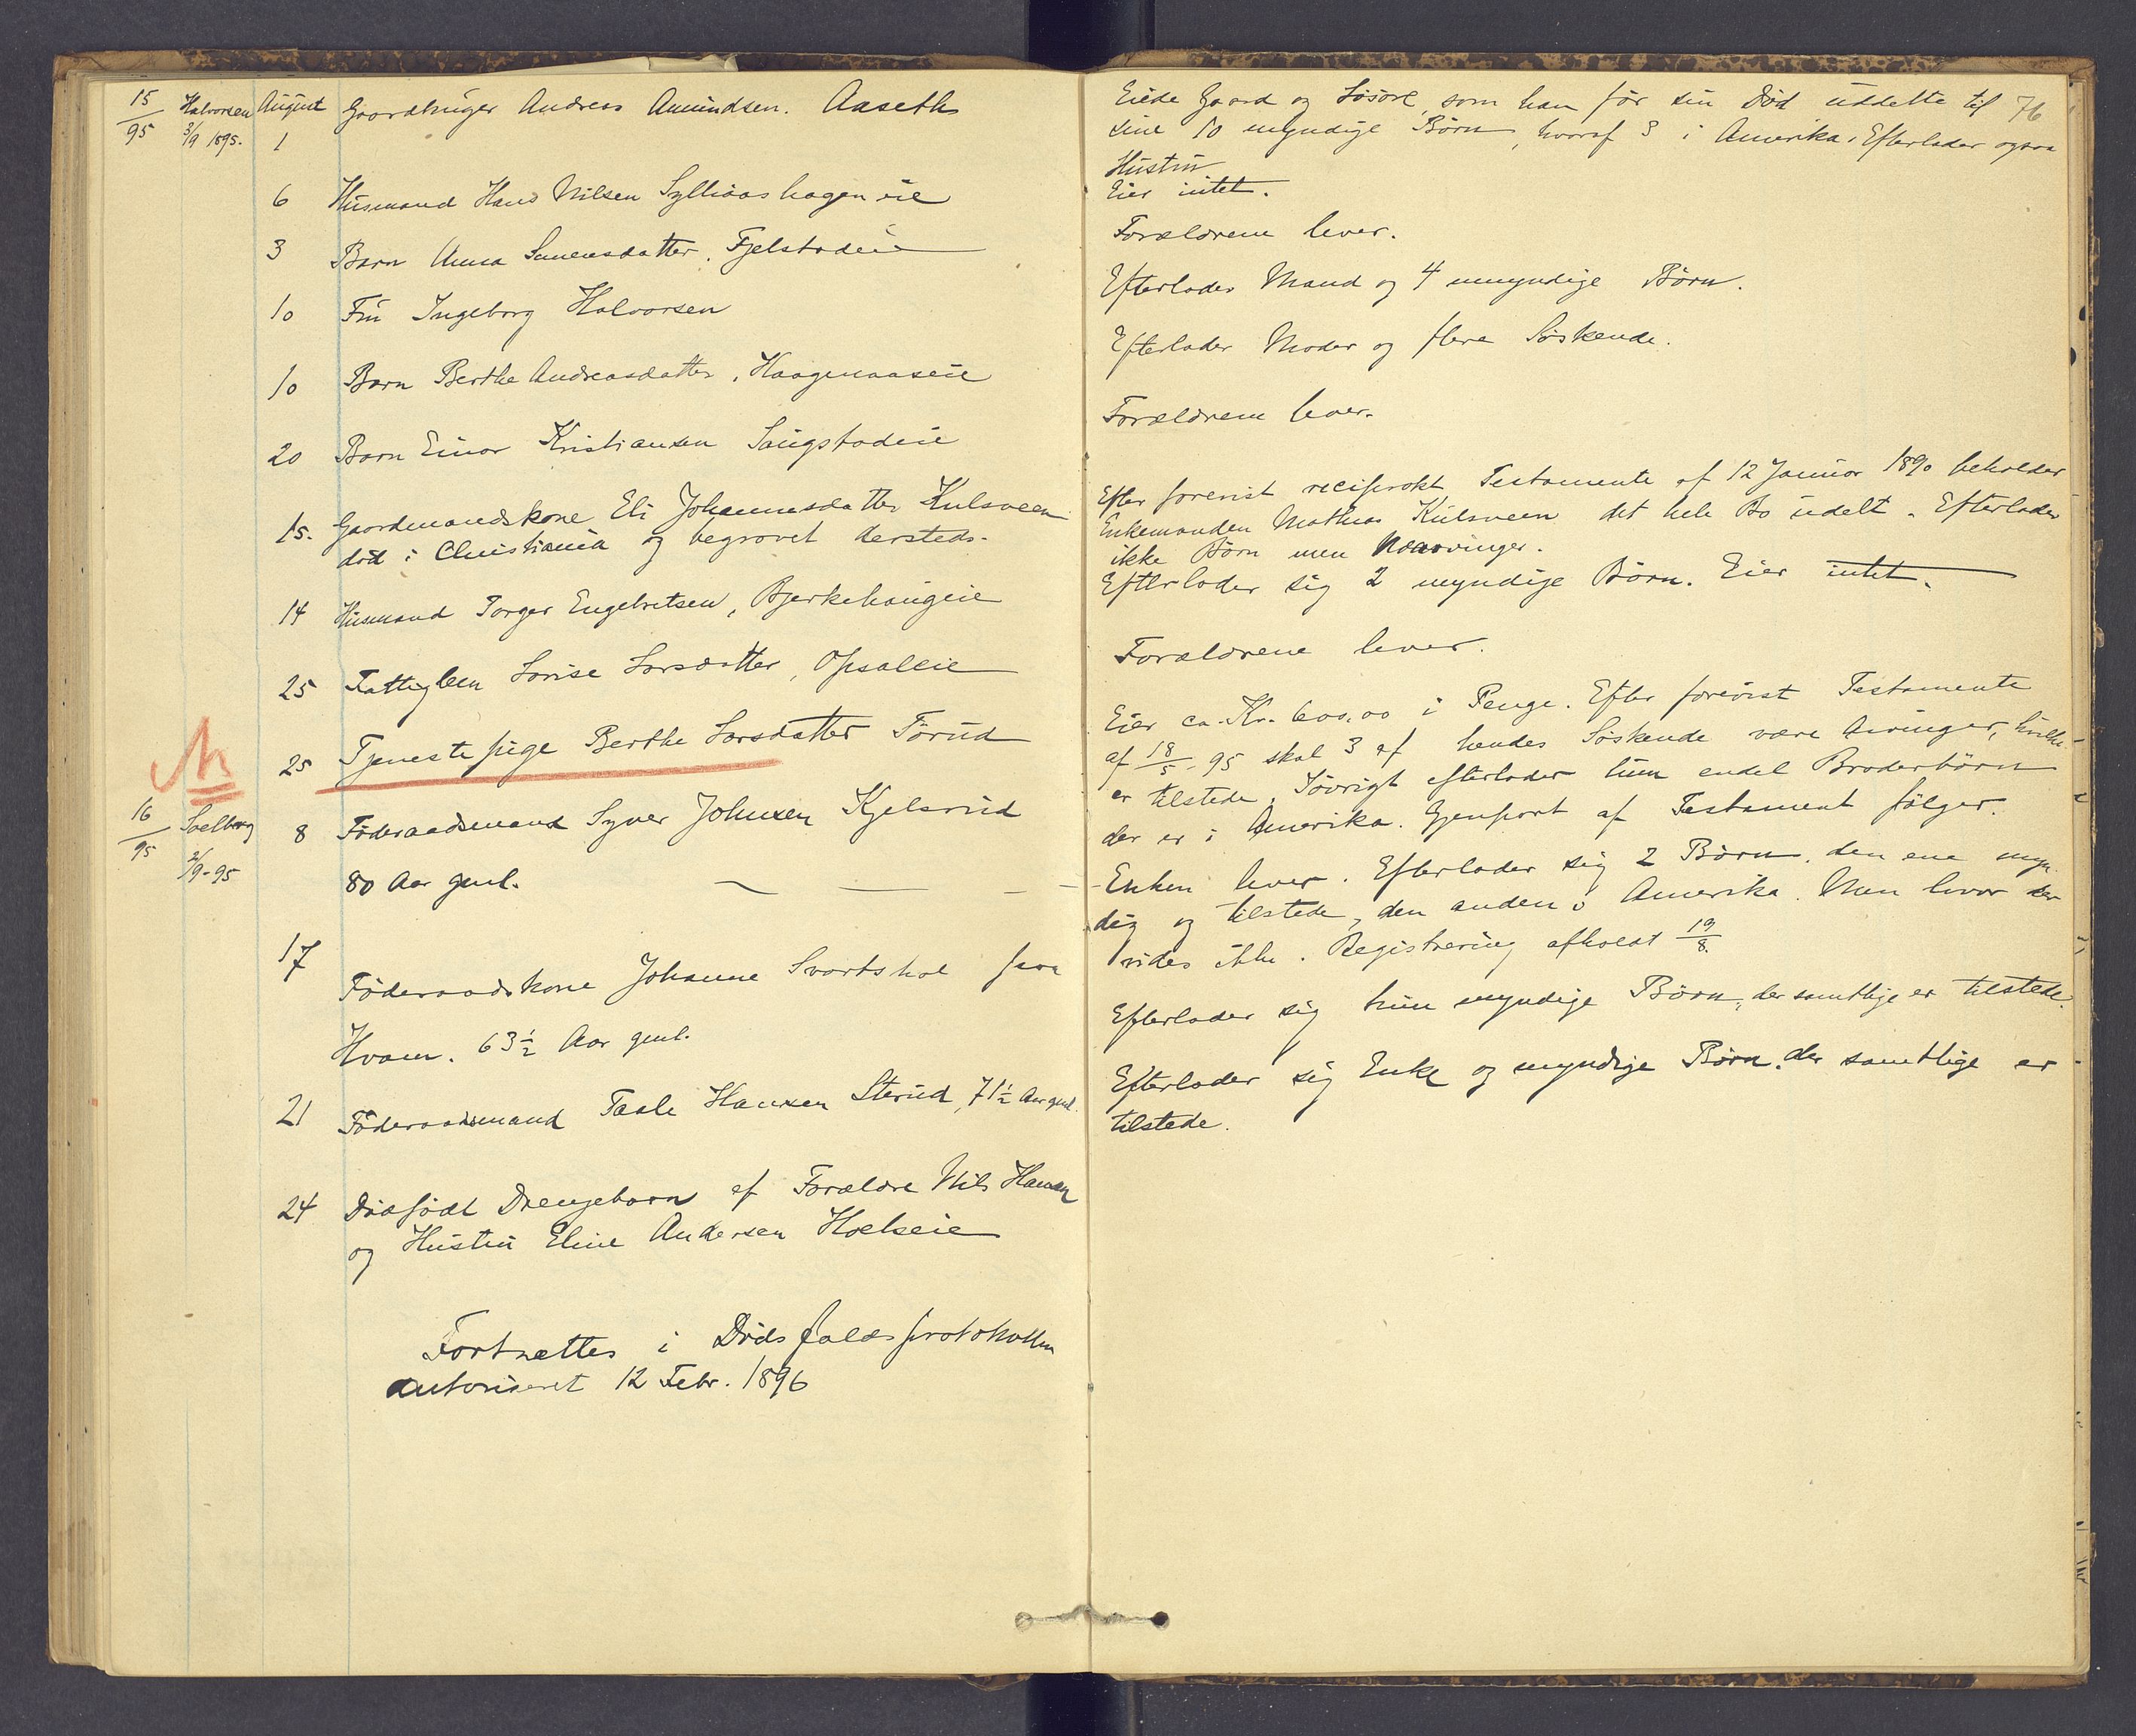 15/95 Halvorsen 3/9 1895. August 1 Gaardbruger Andreas Amundsen. Aaseth
6 Husmand Hans Nilsen Sylliaashagen eie
3 Barn Anna Simensdatter, Fjelstadeie
10 Fru Ingeborg Halvorsen
10 Barn Berthe Andreasdatter, Haagenaaseie
20 Barn Einar Kristiansen Saugstadeie
15. Gaardmandskone Eli Johannesdatter Kulsveen
död i Christiania og begravet dersteds.
14 Husmand Torger Engebretsen, Bjerkehaugeie
25 Fattiglem Lovise Larsdatter, Opsaleie
25 Tjenestepige Berthe Larsdatter Törud
16/95 Soelberg 2/9-95 8 Föderaadsmand Syver Johnsen Kjelsrud
80 Aar gml.
17 Föderaadskone Johanne Svartshol paa
Hvam. 63½ Aar gml.
21 Föderaadsmand Taale Hansen Sterud, 71½ Aar gml.
24 Dödfödt Drengebarn af Forældre Nils Hansen
og Hustru Eline Andersen Hoelseie
Fortsættes i Dödsfaldsprotokollen
autoriseret 12 Febr. 1896
76
Eiede Gaard og Lösöre, som han för sin Död uddelte til
sine 10 myndige Börn, hvoraf 3 i Amerika. Efterlader ogsaa
Hustru
Eier intet.
Forældrene lever.
Efterlader Mand og 4 umyndige Börn.
Efterlader Moder og flere Söskende.
Forældrene lever.
Efter forevist reciprokt Testamente af 12 Januar 1890 beholder
Enkemanden Mathias Kulsveen det hele Bo udelt. Efterlader
ikke Börn men
Efterlader sig 2 myndige Börn. Eier intet.
Forældrene lever.
Eier ca. Kr. 600,00 i Penge. Efter forevist Testamente
af 18/5 - 95 skal 3 af hendes Söskende være Arvinger, hvilke
er tilstede. Iövrigt efterlader hun endel Broderbörn
der er i Amerika. Gjenpart af Testament fölger.
Enken lever. Efterlader sig 2 Börn, den ene myn-
dig og tilstede, den anden i Amerika. Men hvor der
vides ikke. Registrering afholdt 19/8.
Efterlader sig kun myndige Börn, der samtlige er tilstede.
Efterlader sig Enke og myndige Börn, der samtlige er
tilstede.